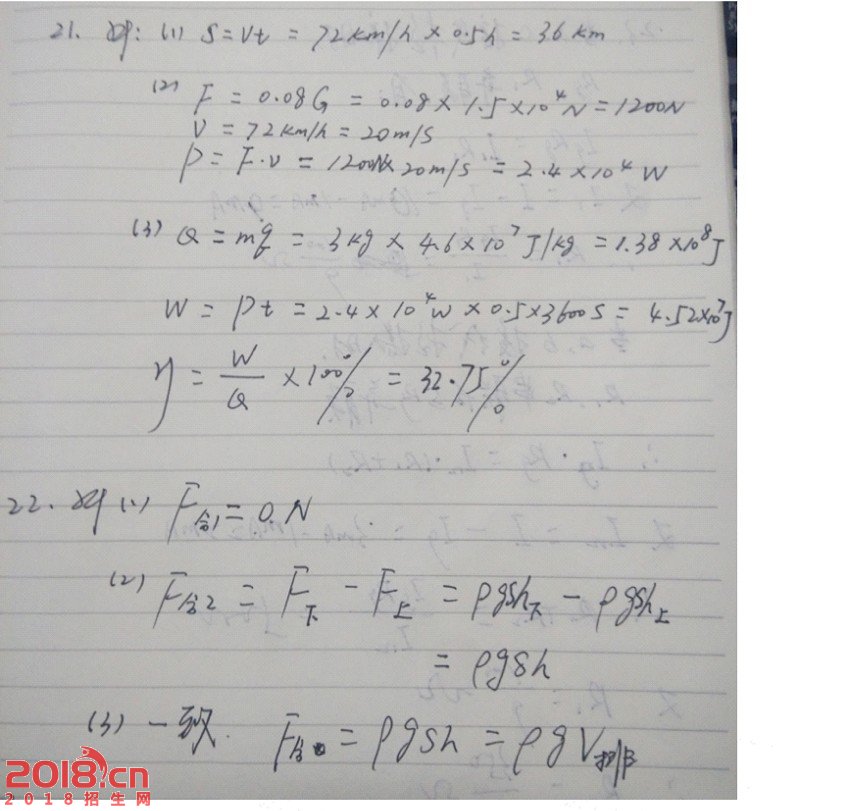 21. 解: (1) S = Vt = 72km/h × 0.5h = 36km
(2) F = 0.08G = 0.08 × 1.5 × 10⁴N = 1200N
V = 72km/h = 20m/s
P = F·v = 1200N × 20m/s = 2.4 × 10⁴ W
(3) Q = mq = 3kg × 4.6 × 10⁷ J/kg = 1.38 × 10⁸J
W = Pt = 2.4 × 10⁴W × 0.5 × 3600s = 4.52×10⁷J
η = W/Q × 100% = 32.75%
22. 解 (1) F合1 = 0N
(2) F合2 = F下 - F上 = ρgsh下 - ρgsh上
= ρgsh
(3) 一致. F合 = ρgsh = ρgV排
2018.cn
2018招生网